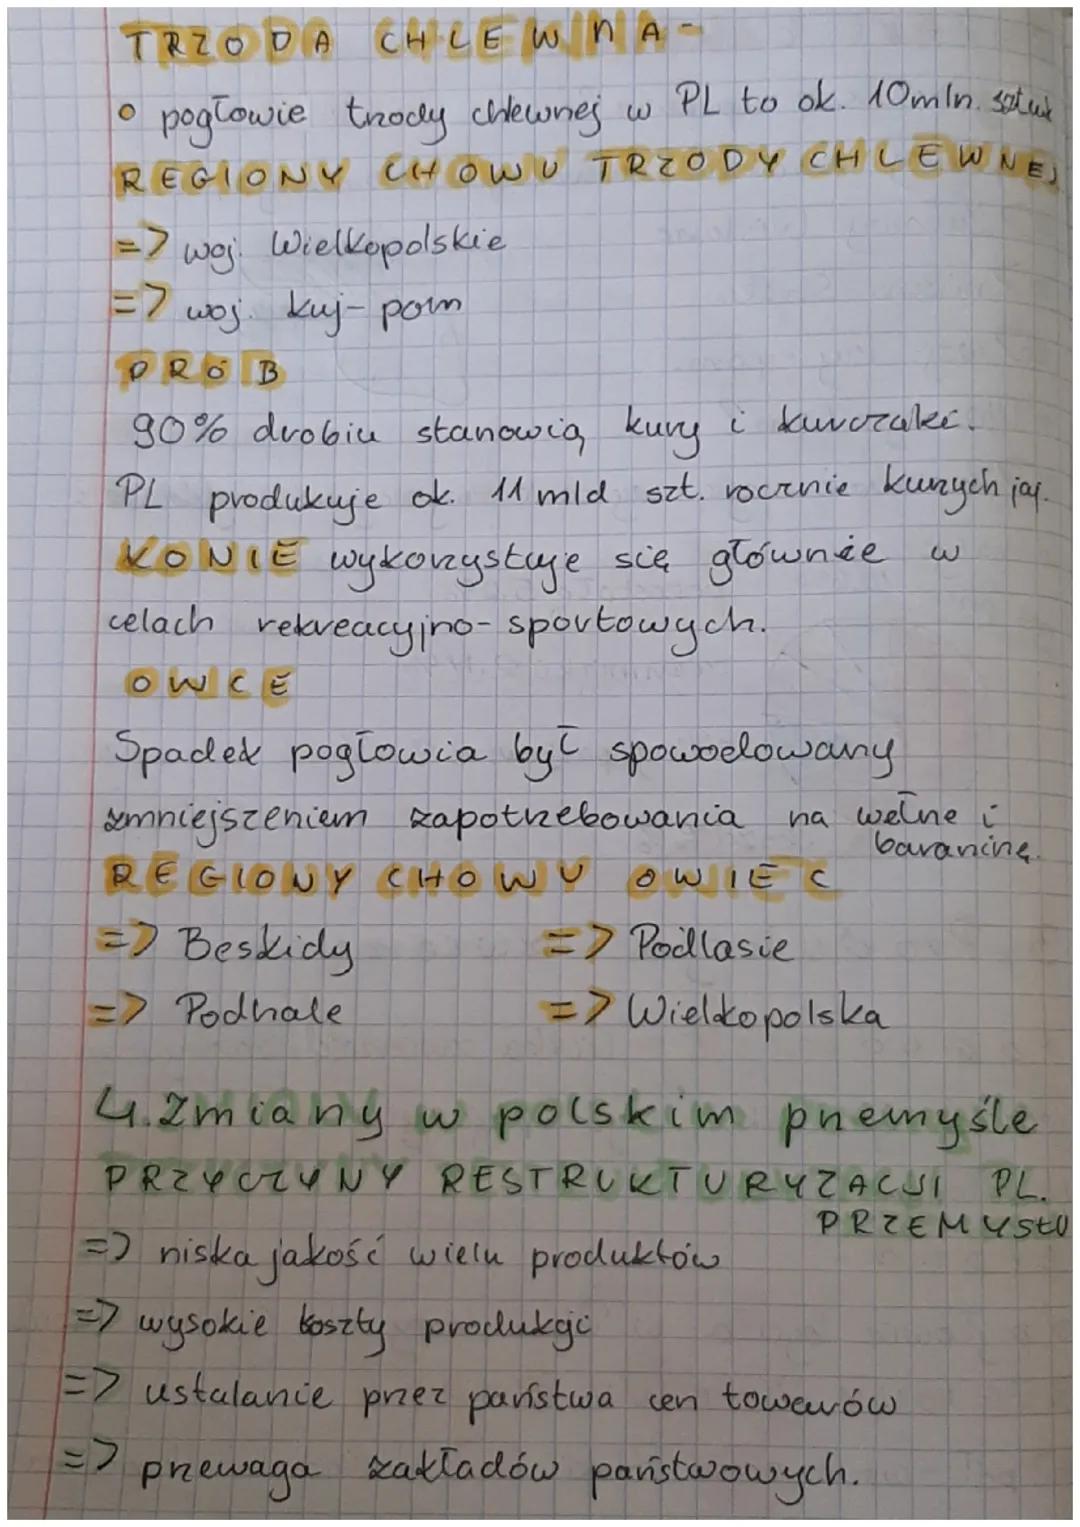 TRZODA CHLEWNA-
• pogłowie trzody chlewnej w PL to ok. 10mln. sztuk
REGIONY CHOWU TRZODY CHLEWNEJ
=> woj. Wielkopolskie
=> woj. kuj-pom
DRÓB
90% drobiu stanowią kury i kurczaki.
PL produkuje ok. 11 mld szt. rocznie kurzych jaj.
KONIE wykorzystuje się głównie w
celach rekreacyjno-sportowych.
OWCE
Spadek pogłowia był spowodowany
zmniejszeniem zapotrzebowania na wełne i
baraninę.
REGIONY CHOWU OWIEC
=> Beskidy => Podlasie
=> Podhale => Wielkopolska
4. Zmiany w polskim przemyśle
PRZYCZYNY RESTRUKTURYZACJI PL.
PRZEMYSŁU
=> niska jakość wielu produktów
=> wysokie koszty produkcji
=> ustalanie przez państwa cen towarów
=> przewaga zakładów państwowych.